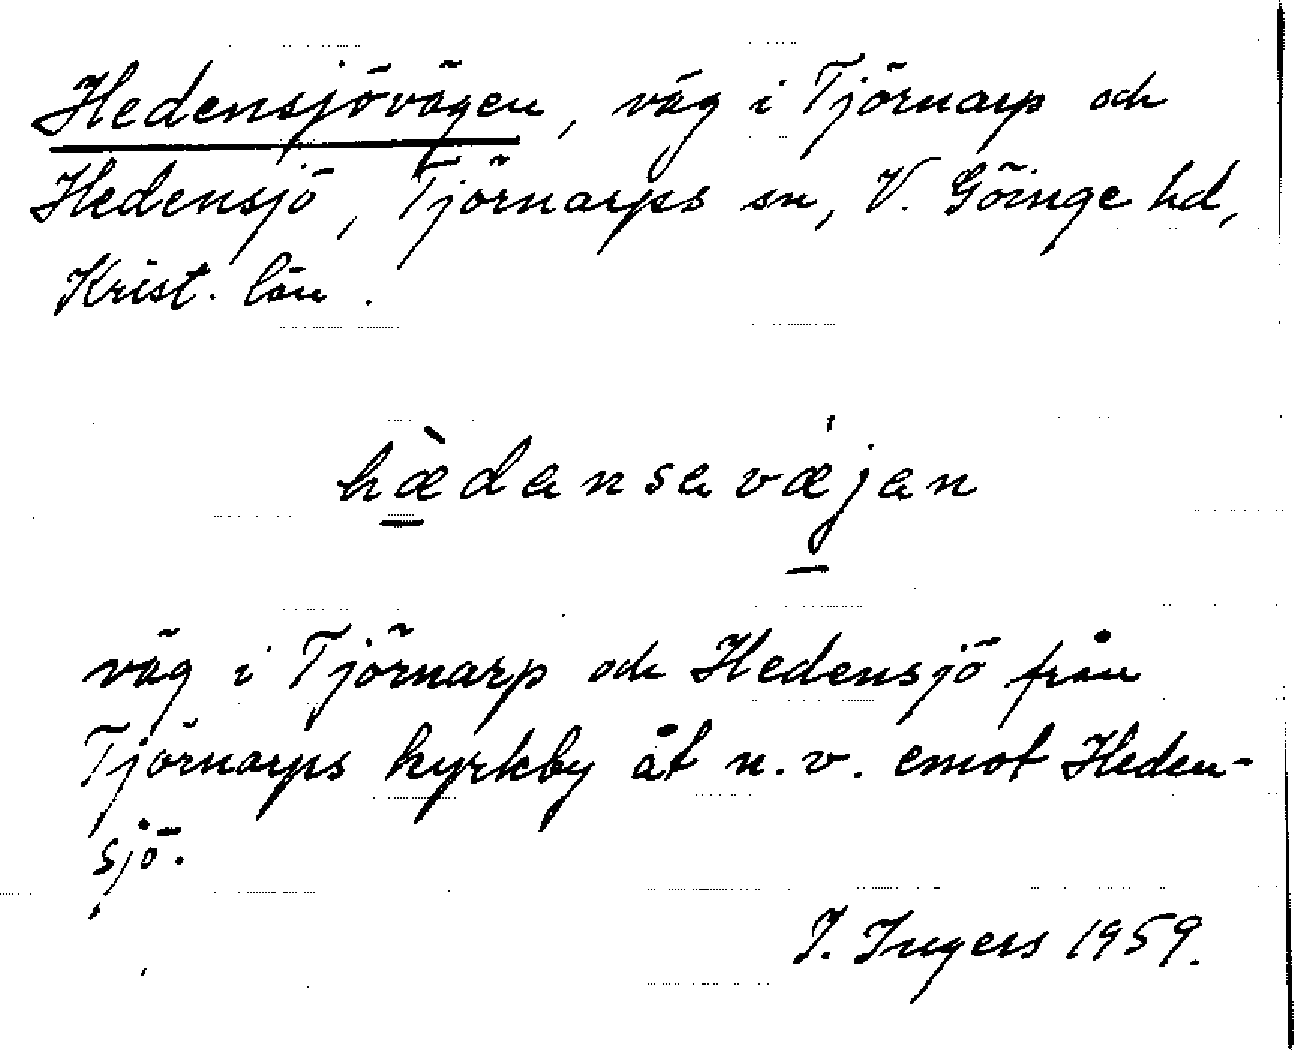 Hedensjövägen, väg i Tjörnarp och
Hedensjö, Tjörnarps sn, V. Göinge hd,
Krist. län.
hæ̀dansavæjan
väg i Tjörnarp och Hedensjö från
Tjörnarps kyrkby åt n.v. emot Heden-
sjö.
I. Ingers 1959.